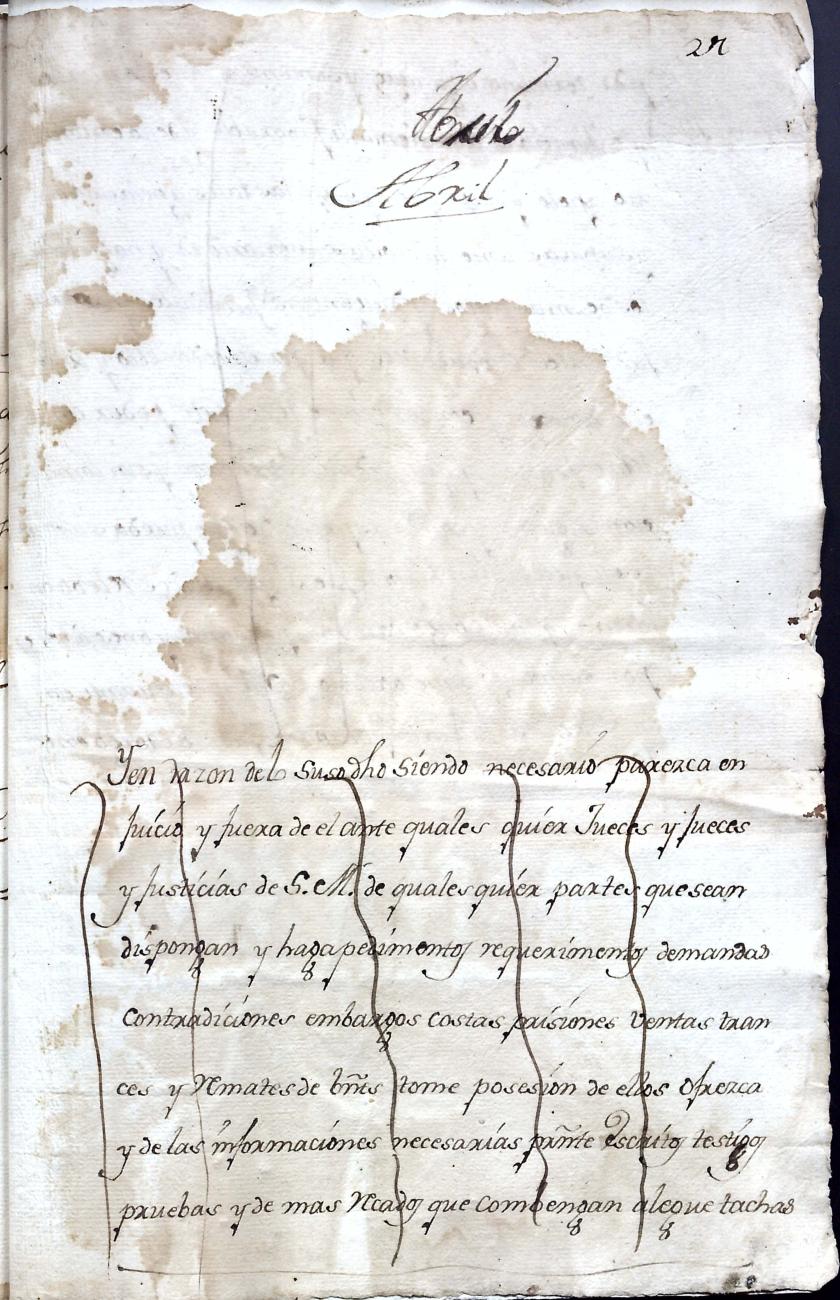 Abril
Yen razon delo susodho siendo necesario parezca en
Juicio y fuera de el ante quales quier Jueces y Jueces
y Justicias de S. M. de quales quier partes que sean
dispongan y haga pedimentos requerimentos demandas
Contradiciones embargos costas prisiones ventas tran
ces y Remates de bñes tome posesion de ellos Ofrezca
y de las informaciones necesarias prñte Escritos testigos
pruebas y de mas Recados que combengan alegue tachas